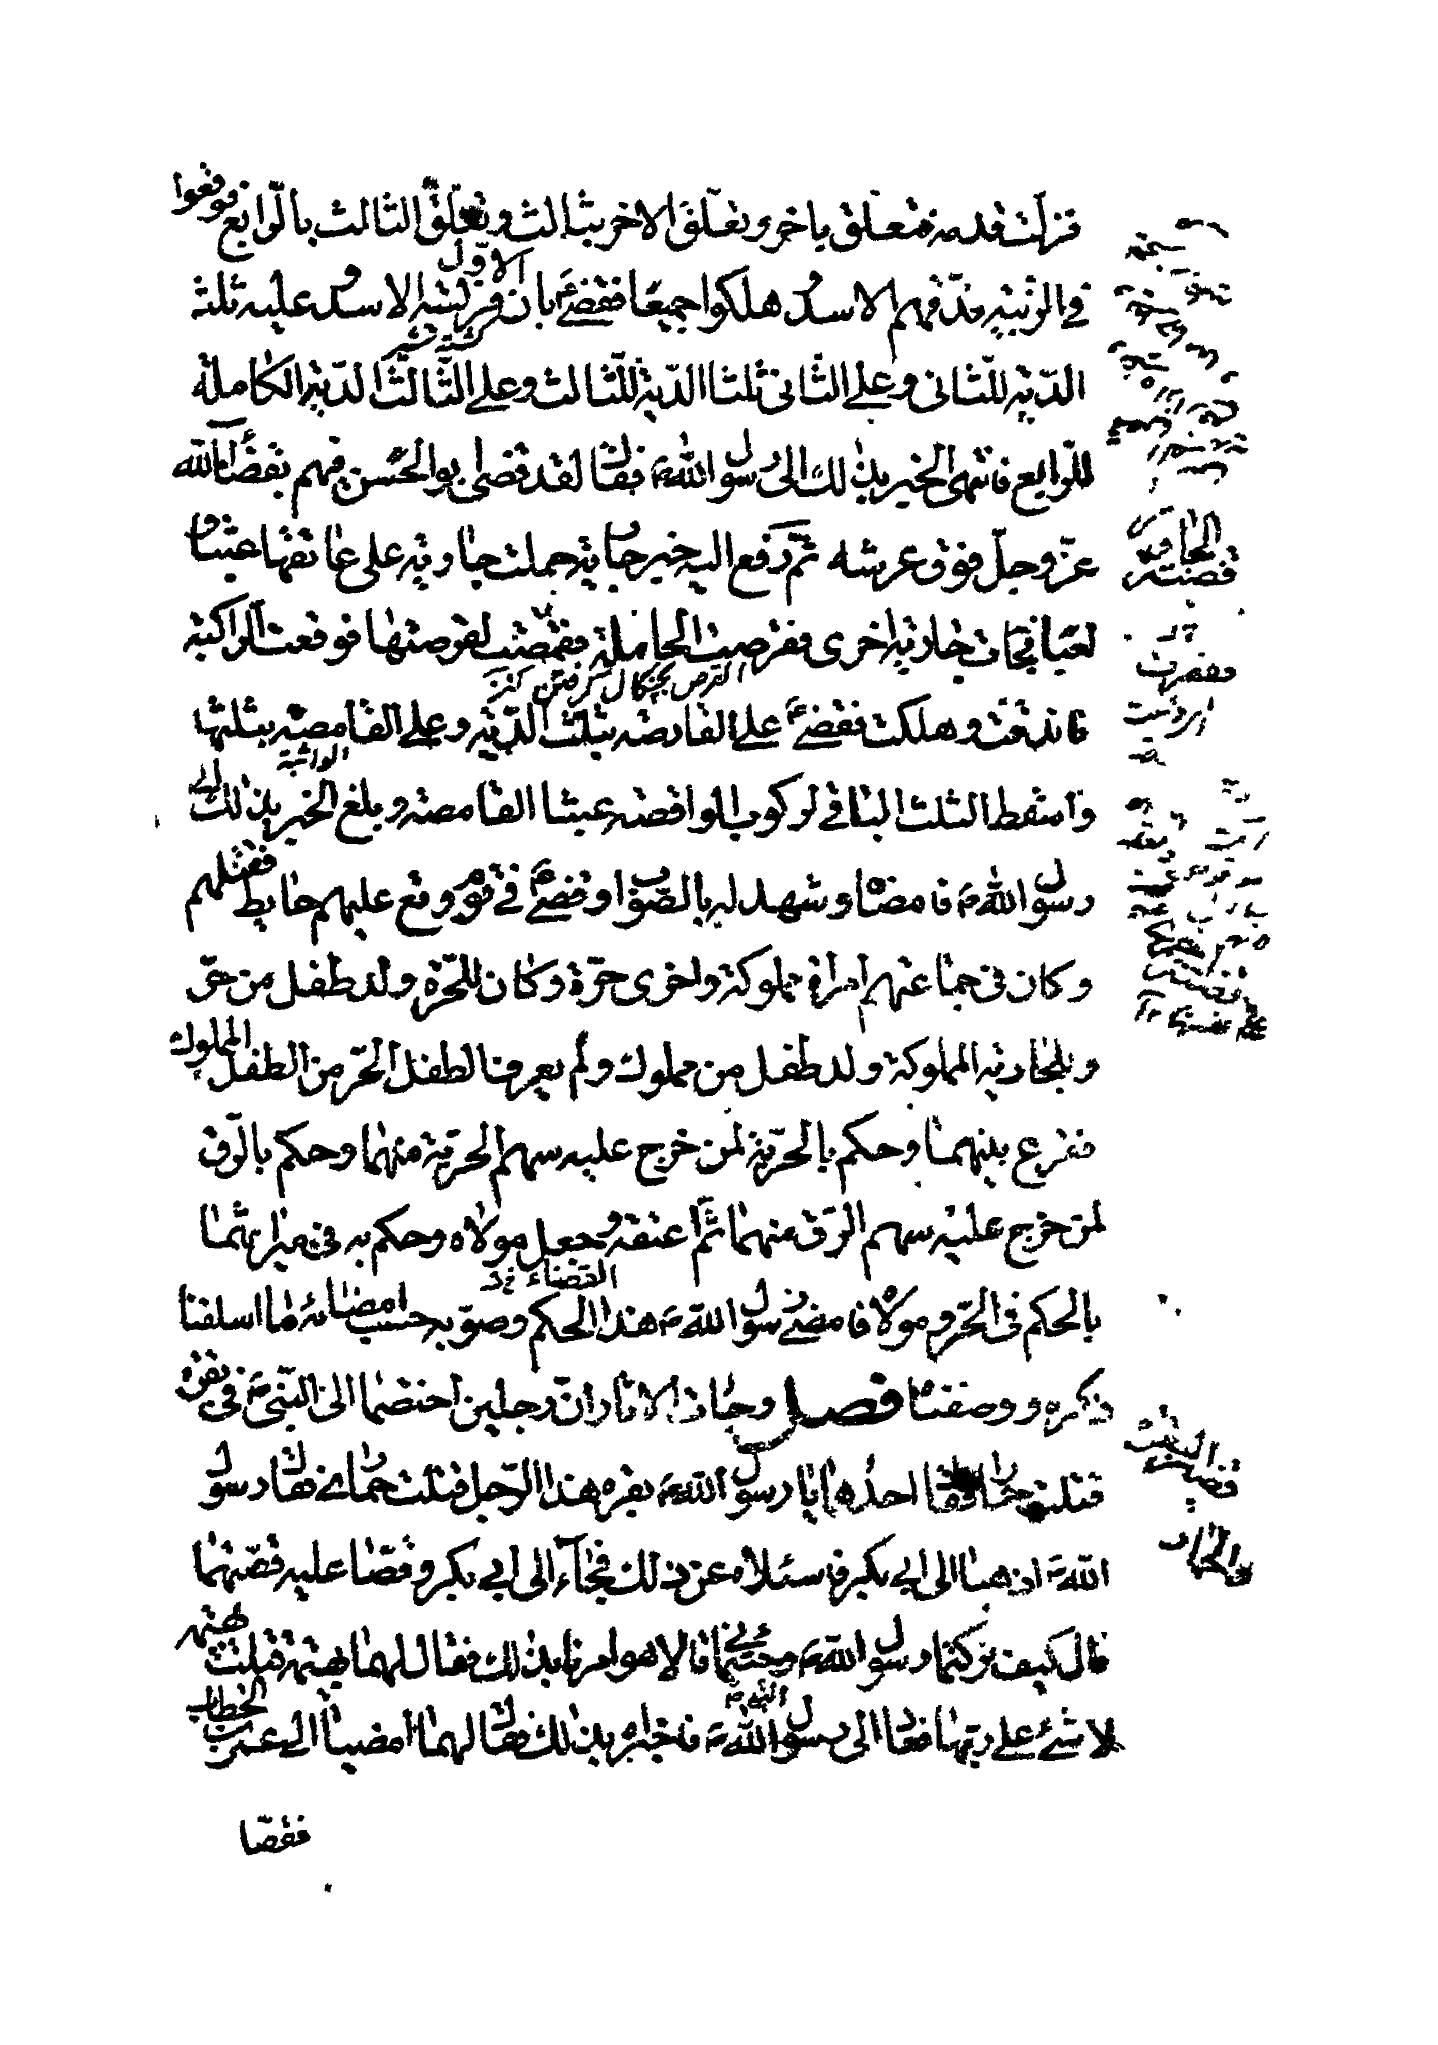 فزلت قدمه فتعلق باخر وتعلق الاخر بثالث وتعلق الثالث بالرابع فوقعوا
في الزبية فدقهم الاسد وهلكوا جميعا فقضى ع بان الاول فريسة الاسد وعليه ثلث
الدية للثاني وعلى الثاني ثلثا الدية للثالث وعلى الثالث الدية الكاملة
للرابع فانتهى الخبر بذلك الى رسول الله ص فقال لقد قضى ابو الحسن فيهم بقضاء الله
عز وجل فوق عرشه ثم رفع اليه خبر جارية حملت جارية على عاتقها عبثا و
لعبا فجائت جارية اخرى فقرصت الحاملة فقمصت لقرصتها فوقعت الراكبة
القرص بچنگال گرفتن كنز
فاندقت وهلكت فقضى ع على القارصة بثلث الدية وعلى القامصة بثلثها
الواثبة
واسقط الثلث الباقي لركوب الواقصة عبثا القامصة وبلغ الخبر بذلك الى
رسول الله ص فامضاه وشهد له بالصواب وقضى ع في قوم وقع عليهم حايط فقتلهم
وكان في جماعتهم امراة مملوكة واخرى حرة وكان للحرة ولد طفل من حر
وللجارية المملوكة ولد طفل من مملوك ولم يعرف الطفل الحر من الطفل المملوك
فقرع بينهما وحكم بالحرية لمن خرج عليه سهم الحرية منهما وحكم بالرق
لمن خرج عليه سهم الرق منهما ثم اعتقه وجعل مولاه وحكم به في ميراثهما
بالحكم في الحر ومولاه فامضى رسول الله ص هذا القضاء الحكم وصوبه حسب امضائه ما اسلفنا
ذكره ووصفناه فصل وجاءت الاثار ان رجلين اختصما الى النبي ص في بقرة
قتلت حمارا فقال احدهما يا رسول الله ص بقرة هذا الرجل قتلت حماري فقال رسول
الله ص اذهبا الى ابي بكر فاسئلاه عن ذلك فجاءا الى ابي بكر وقصا عليه قصتهما
قال كيف تركتما رسول الله ص وجئتماني قالا هو امرنا بذلك فقال لهما بهيمة قتلت بهيمة
لا شئ على ربها فعادا الى رسول الله ص فاخبراه بذلك فقال لهما امضيا الى عمر بن الخطاب
فقصا
قضية الجارية
قضية البقرة
والحمار